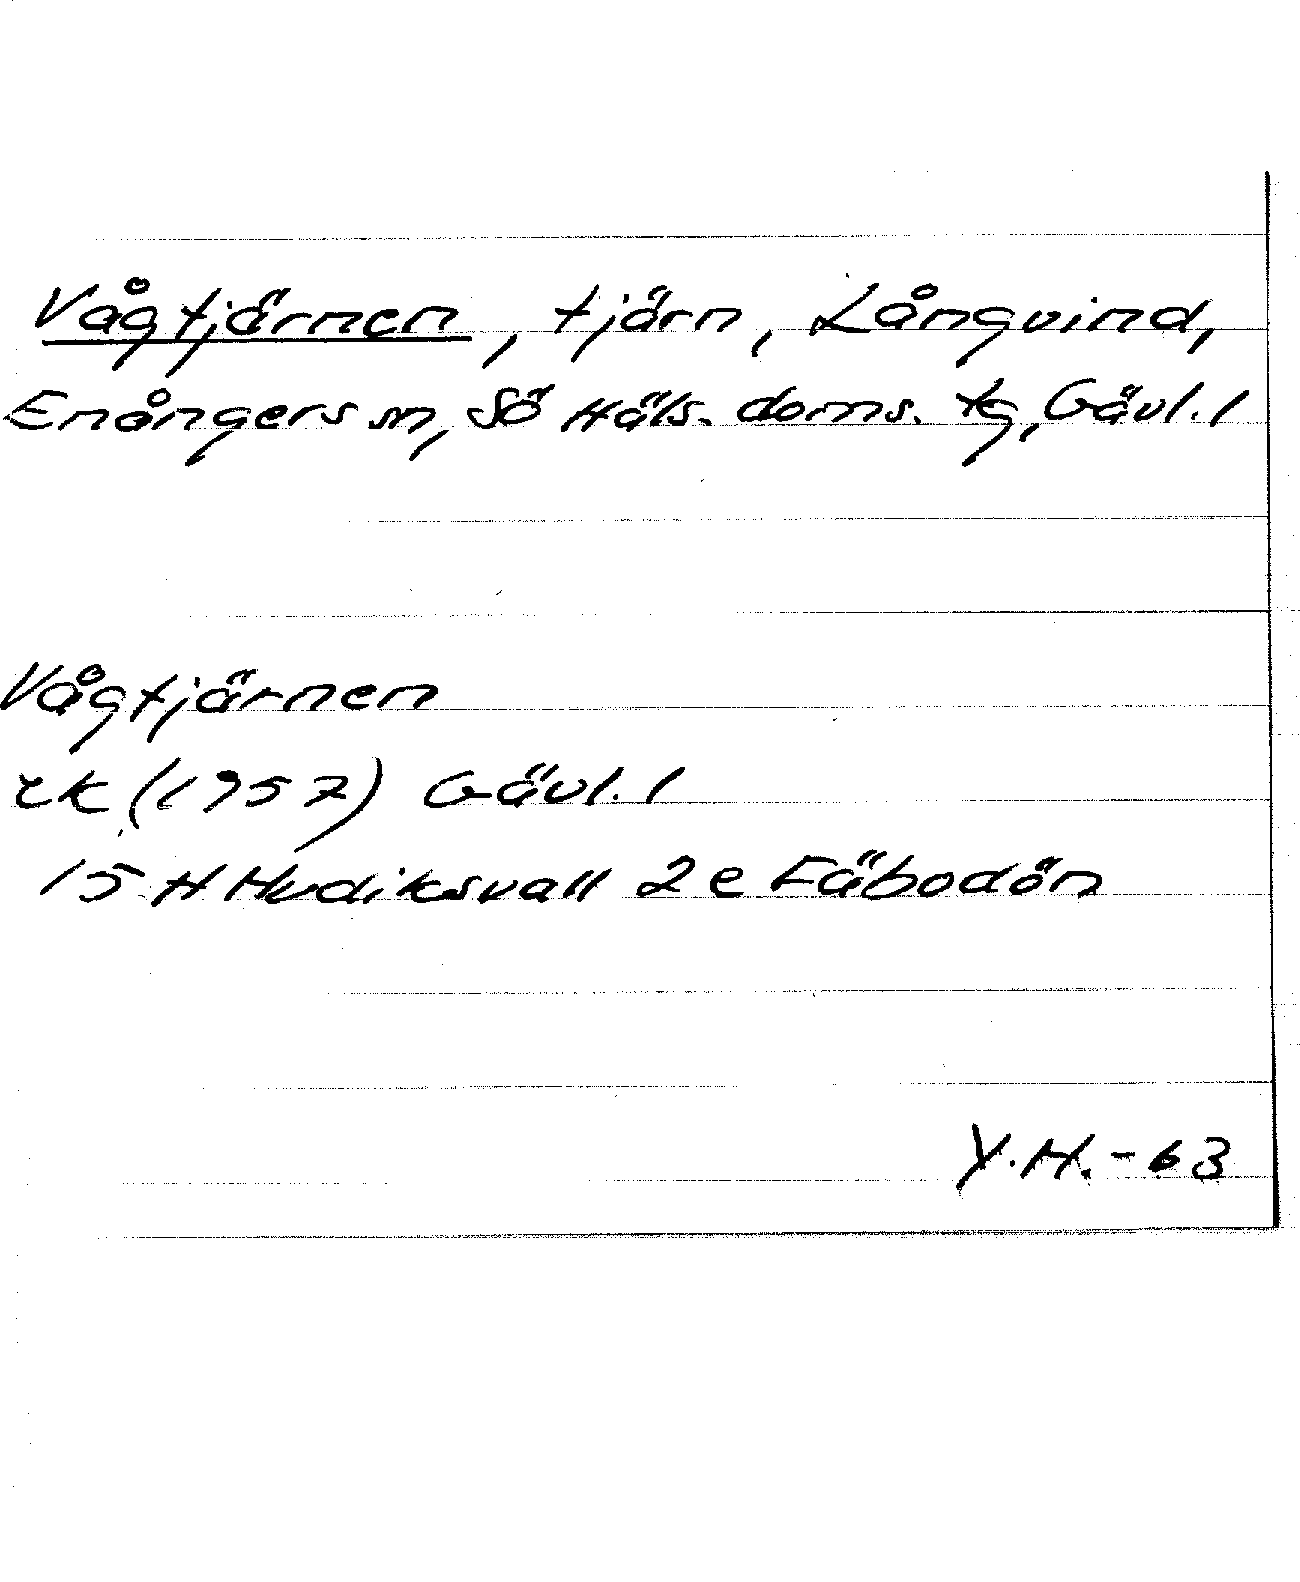 Vågtjärnen, tjärn, Långvind,
Enångers sn, Sö Häls. doms. tg, Gävl. l
Vågtjärnen
rk (1957) Gävl. l
15 H Hudiksvall 2 e Fäbodön
Y.H. - 63